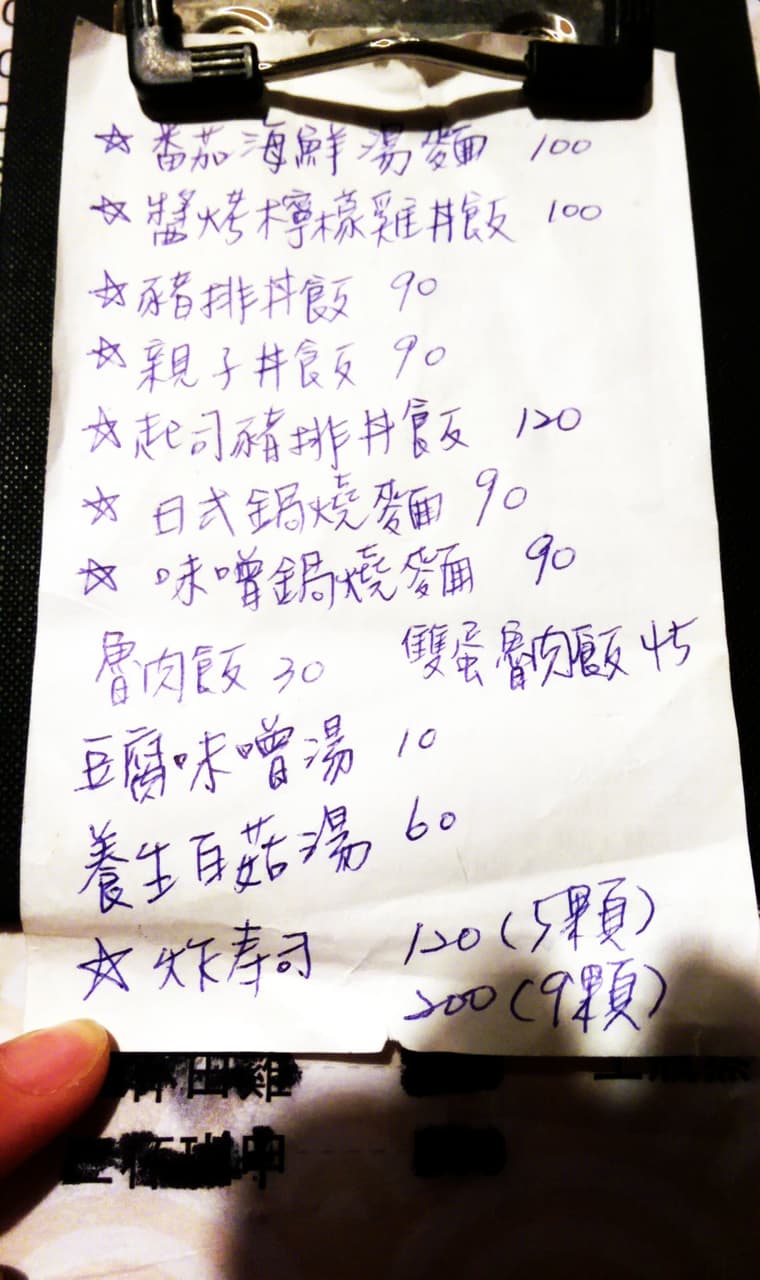 ☆ 番茄海鮮湯麵 100
☆ 醬烤檸檬雞丼飯 100
☆ 豬排丼飯 90
☆ 親子丼飯 90
☆ 起司豬排丼飯 120
☆ 日式鍋燒麵 90
☆ 味噌鍋燒麵 90
魯肉飯 30 雙蛋魯肉飯 45
豆腐味噌湯 10
養生百菇湯 60
☆ 炸寿司 120(5顆)
200(9顆)
田雞